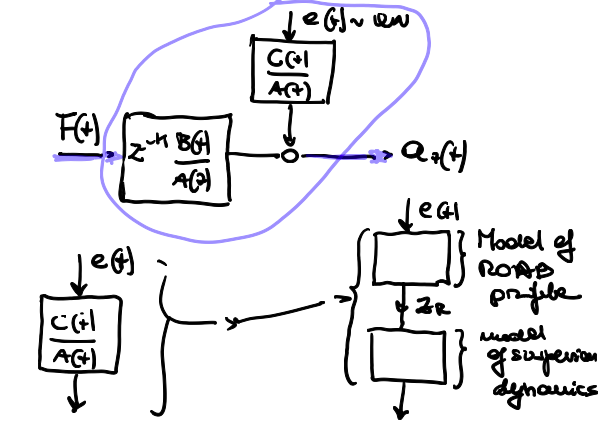 e(t) ~ WN
C(z)
A(z)
F(t)
z^-k B(z)
A(z)
a_z(t)
e(t)
C(z)
A(z)
e(t)
Model of
ROAD
profile
z_R
model
of suspension
dynamics